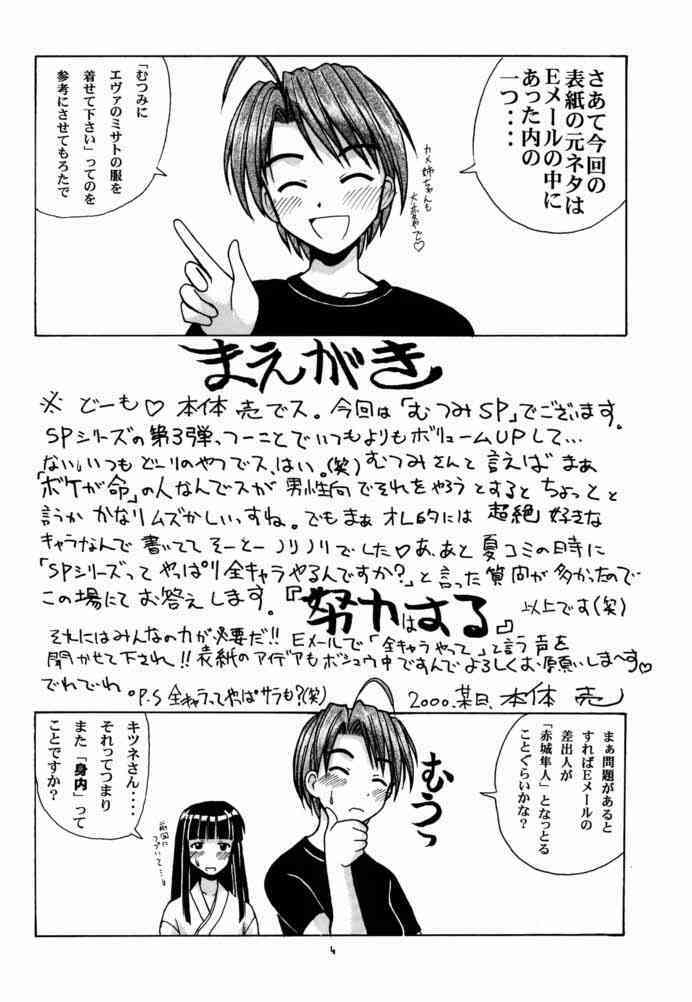 さあて今回の
表紙の元ネタは
Eメールの中に
あった内の
一つ・・・
カメ姉ちゃんも
大変やで♡
「むつみに
エヴァのミサトの服を
着せて下さい」ってのを
参考にさせてもろたで
まえがき
※ どーも♡ 本体 売でス。今回は「むつみSP」でございます。
SPシリーズの第3弾、つーことでいつもよりもボリュームUPして…
ない。いつもどーりのやつでス、はい。(笑) むつみさんと言えば まあ
「ボケが命」の人なんでスが 男性向でそれをやろうとすると ちょっと
言うか かなりムズかしいっすね。でもまぁ オレ的には 超絶 好きな
キャラなんで 書いてて そーとーノリノリでした♡あ、あと 夏コミの時に
「SPシリーズって やっぱり全キャラやるんですか?」と言った質問が多かったので
この場にて お答えします。『努力はする』 以上です(笑)
それにはみんなの力が必要だ!! Eメールで「全キャラやって」と言う声を
聞かせて下され!! 表紙のアイデアもボシュウ中ですんでよろしくお願いしま〜す♡
でれでれ。P.S 全キャラってやっぱサラも?(笑) 2000.某日、本体 売
まぁ問題があると
すればEメールの
差出人が
「赤城隼人」となっとる
ことぐらいかな?
むうっ
キツネさん・・・・
それってつまり
また「身内」って
ことですか?
前回に
つづいて…
4